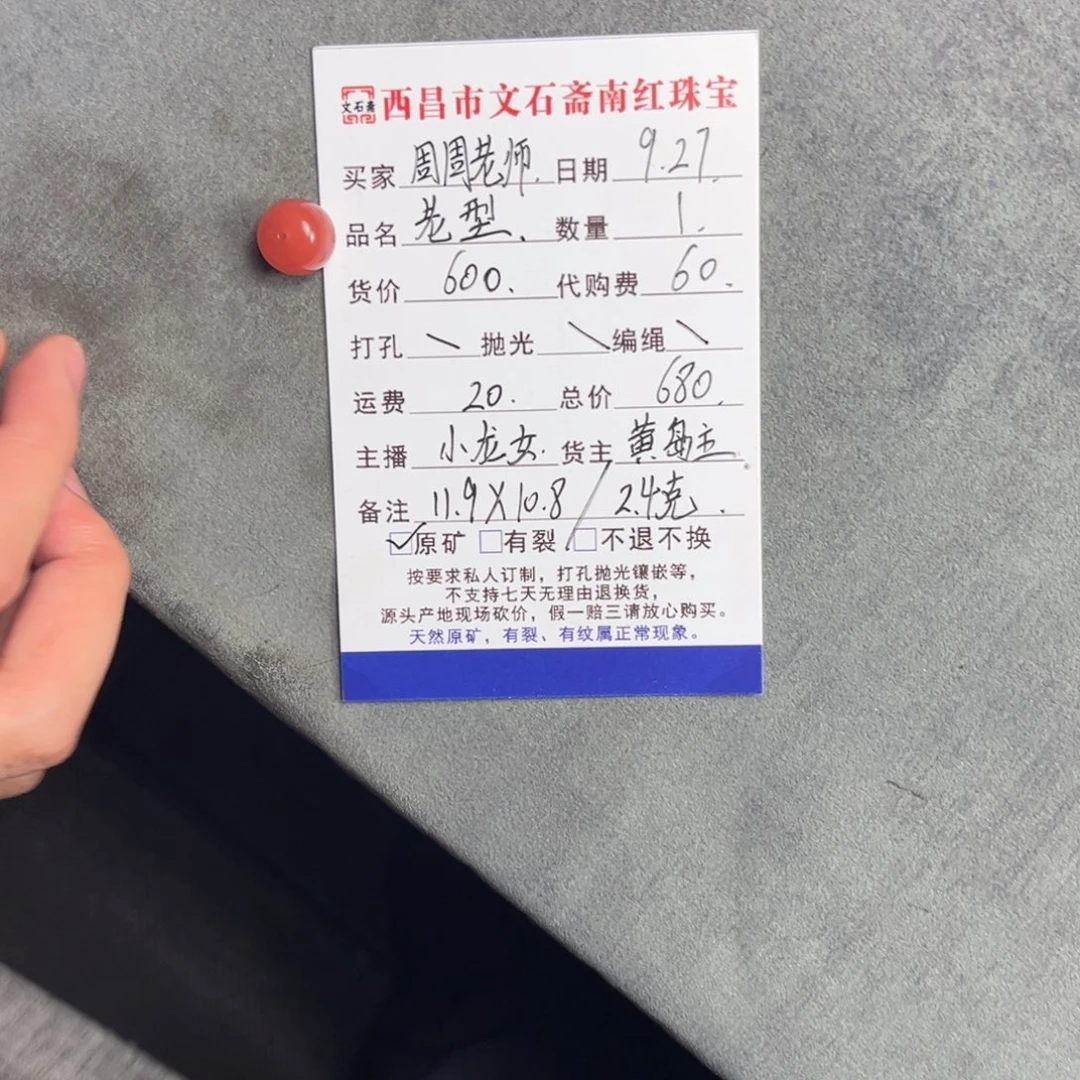 文石斋 西昌市文石斋南红珠宝
买家 周周老师. 日期 9.27.
品名 老型. 数量 1.
货价 600. 代购费 60.
打孔 \ 抛光 \ 编绳 \
运费 20. 总价 680.
主播 小龙女. 货主 黄岛主
备注 11.9X10.8 / 2.4克.
☑原矿 □有裂 □不退不换
按要求私人订制，打孔抛光镶嵌等，
不支持七天无理由退换货，
源头产地现场砍价，假一赔三请放心购买。
天然原矿，有裂、有纹属正常现象。